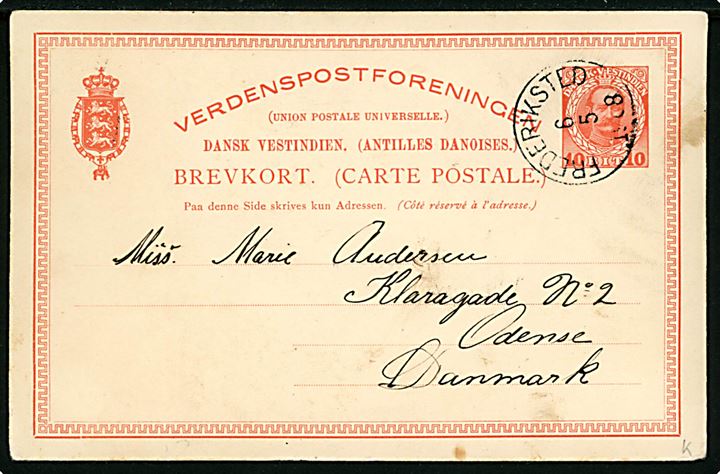 VERDENSPOSTFORENINGEN
(UNION POSTALE UNIVERSELLE.)
DANSK VESTINDIEN. (ANTILLES DANOISES.)
BREVKORT. (CARTE POSTALE.)
Paa denne Side skrives kun Adressen. (Côté réservé à l'adresse.)
FREDERIKSTED
6
5
08
10 10
Miss. Marie Andersen
Klaragade No 2
Odense
Danmark
K